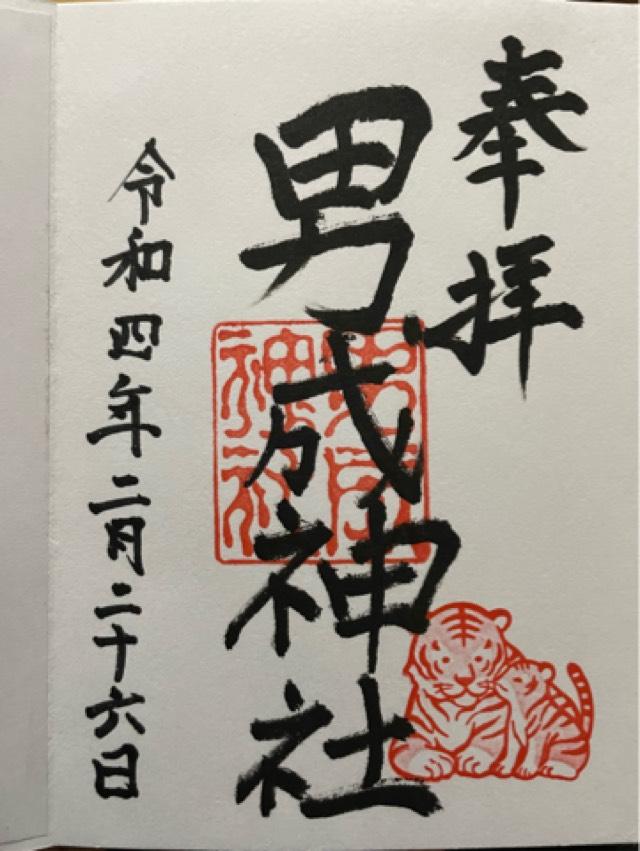 奉拝
男成神社
令和四年二月二十六日